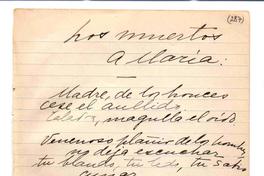 (287)
Los muertos
A María:
Madre, de los bronces
cese el aullido.
, magulla el oído.
Venenoso plañir de los hombres
no deja escuchar
tu blando, tu ledo, tu